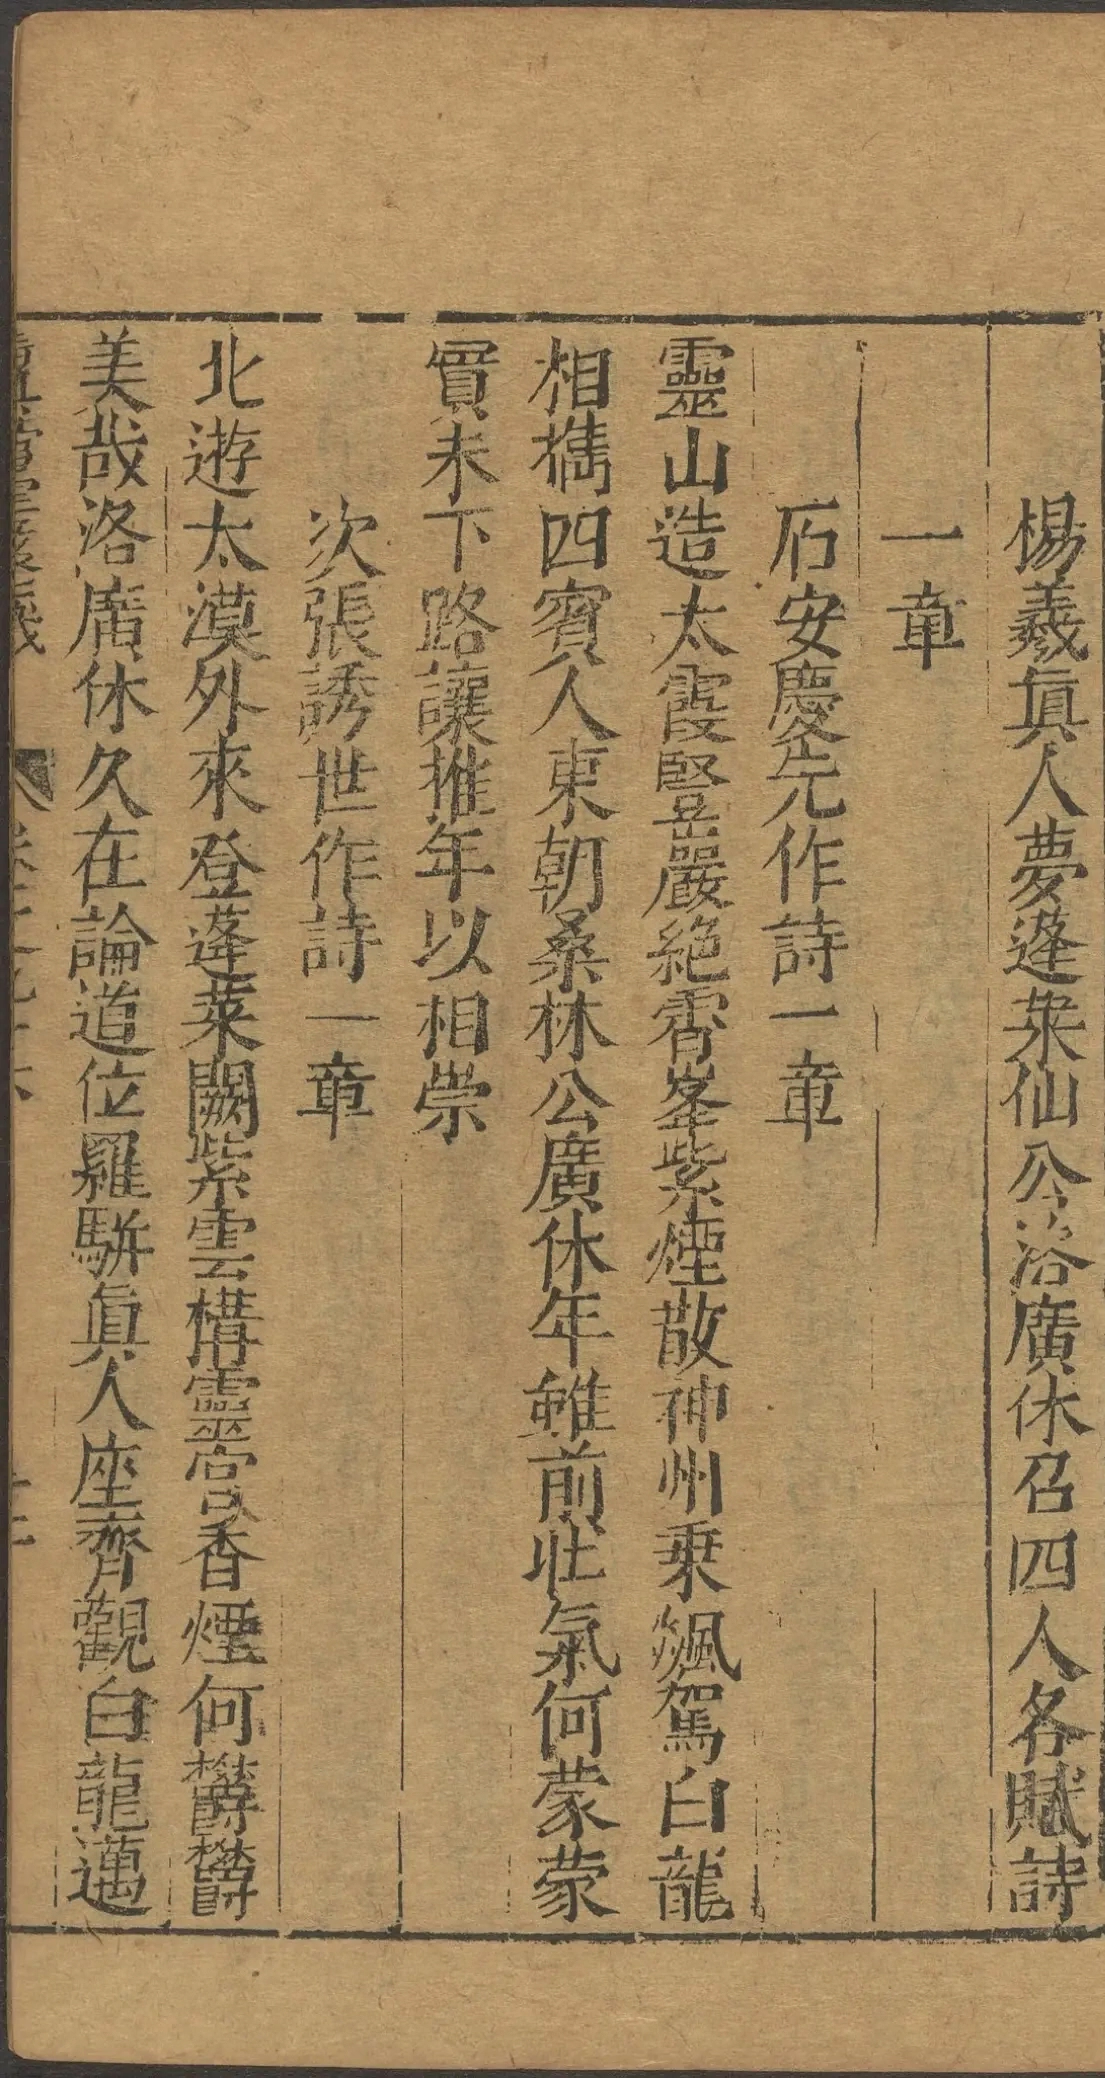 楊羲眞人夢蓬萊仙公洛廣休召四人各賦詩
一章
石安慶先作詩一章
靈山造太霞豎巖絶霄峯紫煙散神州乗飇駕白龍
相㩦四賓人東朝桑林公廣休年雖前壯氣何蒙蒙
實未下路讓推年以相崇
次張誘世作詩一章
北遊太漠外來登蓬萊闕紫雲構靈宮香煙何鬱鬱
美哉洛廣休久在論道位羅駢眞人座齊觀白龍邁